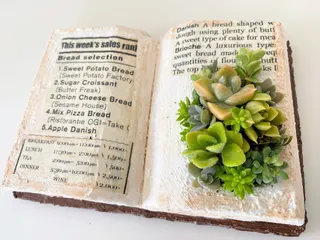 This week's sales ranl
Bread selection
1.Sweet Potato Bread
(Sweet Potato Factory
2.Sugar Croissant
(Butter Freak)
3.Onion Cheese Bread
(Sesame House)
4.Mix Pizza Bread
(Ristorante OGI=Take
5.Apple Danish
BREAKFAST
LUNCH
TEA
DINNER
WINE
Danish A bread shaped w
ough using plenty of butt
A sweet type of cake for mea
Brioche A luxurious type
bread made
quantities of flou
The top